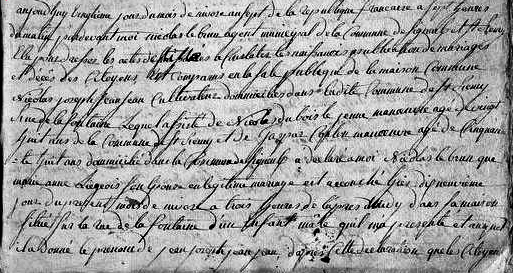 aujourd'huy vingtieme jour du mois de nivose an sept de la republique francaise a sept heures
du matin par devant moi nicolas le brun agent municipal de la Commune de
Elu pour dresser les actes de destines a Constater les naissances publication de mariages
et décès des Citoyens Est Comparu en la sale publique de la maison Commune
Nicolas joseph jean jean Cultivateur domicilié dans ladite Commune de St remy
rue de la fontaine Lequel assisté de Nicolas dubois le jeune manoeuvre agé de vingt
huit ans de la Commune de St remy et de Gaspar manoeuvre agé de Cinquante
huit ans domicilié dans la Commune de a déclaré a moi Nicolas le brun que
marie anne Liegeois son Epouse en legitime mariage est accouché hier dix neuvieme
jour du present mois de nivose a trois heures de lapres midy dans sa maison
située sur la rue de la fontaine d'un Enfant mâle quil ma presenté et auquel
il a donné le prenom de jean joseph jean jean d'apres cette declaration que les Citoyens